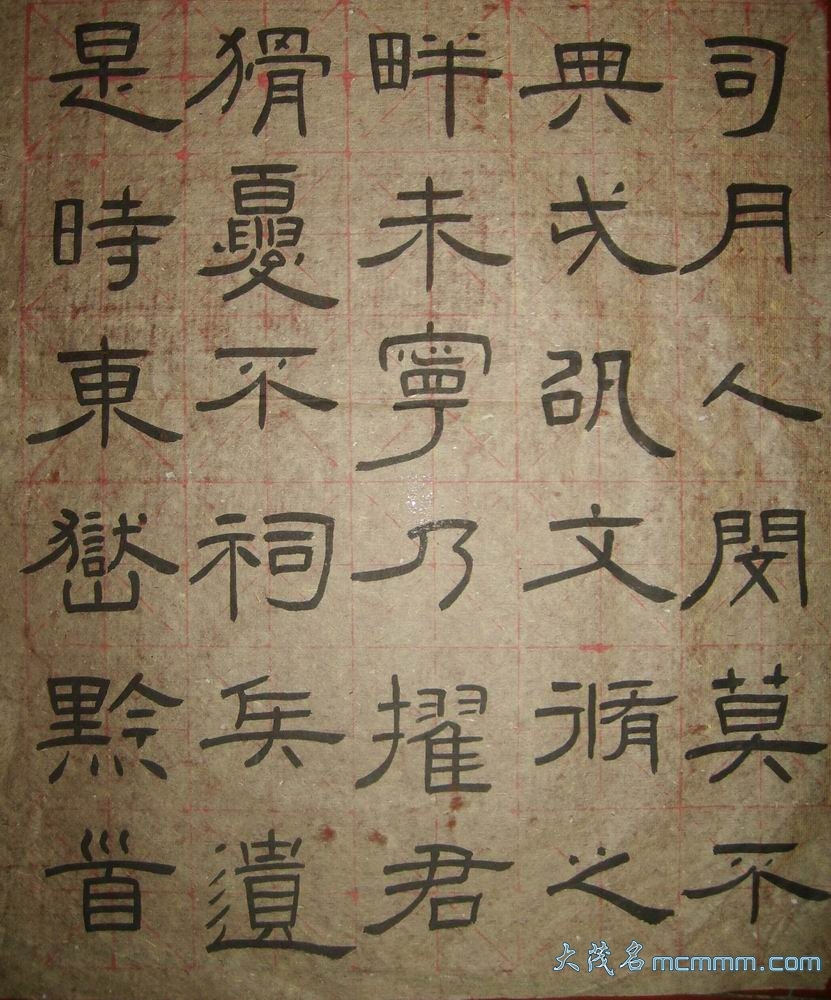 是時東嶽黔首
猾夏不祠兵遺
畔未寧乃擢君
典戎文脩之
司月人閔莫不
大茂名 mcmmm.com